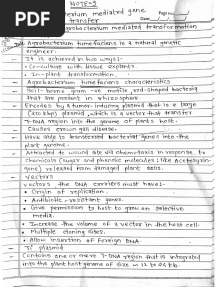 NOTE-9
PDF
Agrobacterium mediated gene
transfer
Page no.
Date
Agrobacterium mediated transformation
Agrobacterium tumefaciens is a natural genetic
engineer.
It is achieved in two ways-
• Co-culture with tissue explants.
• In-plant transformation.
Agrobacterium tumefaciens characteristics
Soil-borne gram -ve motile, rod-shaped bacteria
that are present in rhizosphere
Encodes by a tumor-inducing plasmid that is a large
plasmid, which is a vector that transfer
T-DNA region into the genome of plants host.
Causes crown gall disease.
Have ability to transferred bacterial genes into the
plant genome.
Attracted to wound site via chemotaxis in response to
chemicals (sugar and phenolic molecules like Acetosyrin-
gone) released from damaged plant cells.
vectors
vectors the DNA carriers must have-
• Origin of replication.
• Antibiotic-resistant genes.
• Give permission to host to grow on selective
media.
• Increase the volume of a vector in the host cell.
• Multiple cloning sites.
• Allow insertion of foreign DNA
Ti plasmid
Contains one or more T-DNA region that is integrated
into the plant host genome of size in 12 to 24 kb.